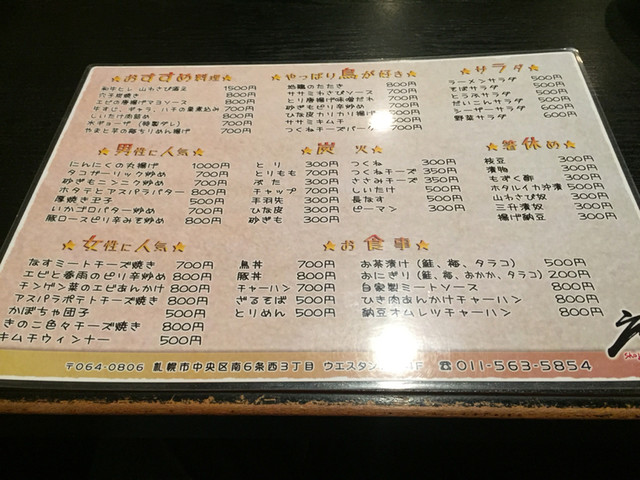 おすすめ料理
和牛ヒレ 山わさび添え 1500円
穴子炭焼き 800円
エビの唐揚げマヨソース 800円
牛すじ、ギャラ、ハチの巣煮込み 700円
しいたけ缶詰め 800円
水ギョーザ(特製ダレ) 700円
やまと芋の梅ちりめん揚げ 700円
やっぱり鳥が好き
地鶏のたたき 800円
ササミわさびソース 700円
とり唐揚げ味噌だれ 700円
砂ぎもピリ辛炒め 700円
ひな皮カリカリ揚げ 700円
ササミキムチ 700円
つくねチーズバーグ 700円
サラダ
ラーメンサラダ 500円
そばサラダ 500円
とうふサラダ 500円
だいこんサラダ 500円
シーザーサラダ 600円
野菜サラダ 600円
男性に人気
にんにくの丸揚げ 1000円
タコガーリック炒め 700円
砂ぎもニンニク炒め 700円
ホタテとアスパラバター 800円
厚焼き玉子 500円
いかゴロバター炒め 700円
豚ロースピリ辛みそ炒め 800円
炭火
とり 300円
とりもも 700円
ぶた 300円
チャップ 700円
手羽先 300円
ひな皮 300円
砂ぎも 300円
つくね 300円
つくねチーズ 350円
ささみチーズ 350円
しいたけ 500円
長なす 500円
ピーマン 300円
箸休め
枝豆 300円
漬物 300円
もずく酢 300円
ホタルイカ沖漬 500円
山わさび奴 300円
三升漬奴 300円
揚げ納豆 300円
女性に人気
なすミートチーズ焼き 700円
エビと春雨のピリ辛炒め 800円
チンゲン菜のエビあんかけ 800円
アスパラポテトチーズ焼き 800円
かぼちゃ団子 500円
きのこ色々チーズ焼き 800円
キムチウィンナー 500円
お食事
鳥丼 700円
豚丼 800円
チャーハン 700円
ざるそば 500円
とりめん 500円
お茶漬け(鮭、梅、タラコ) 500円
おにぎり(鮭、梅、おかか、タラコ) 200円
自家製ミートソース 800円
ひき肉あんかけチャーハン 800円
納豆オムレツチャーハン 800円
〒064-0806 札幌市中央区南6条西3丁目 ウエスタン F ☎011-563-5854